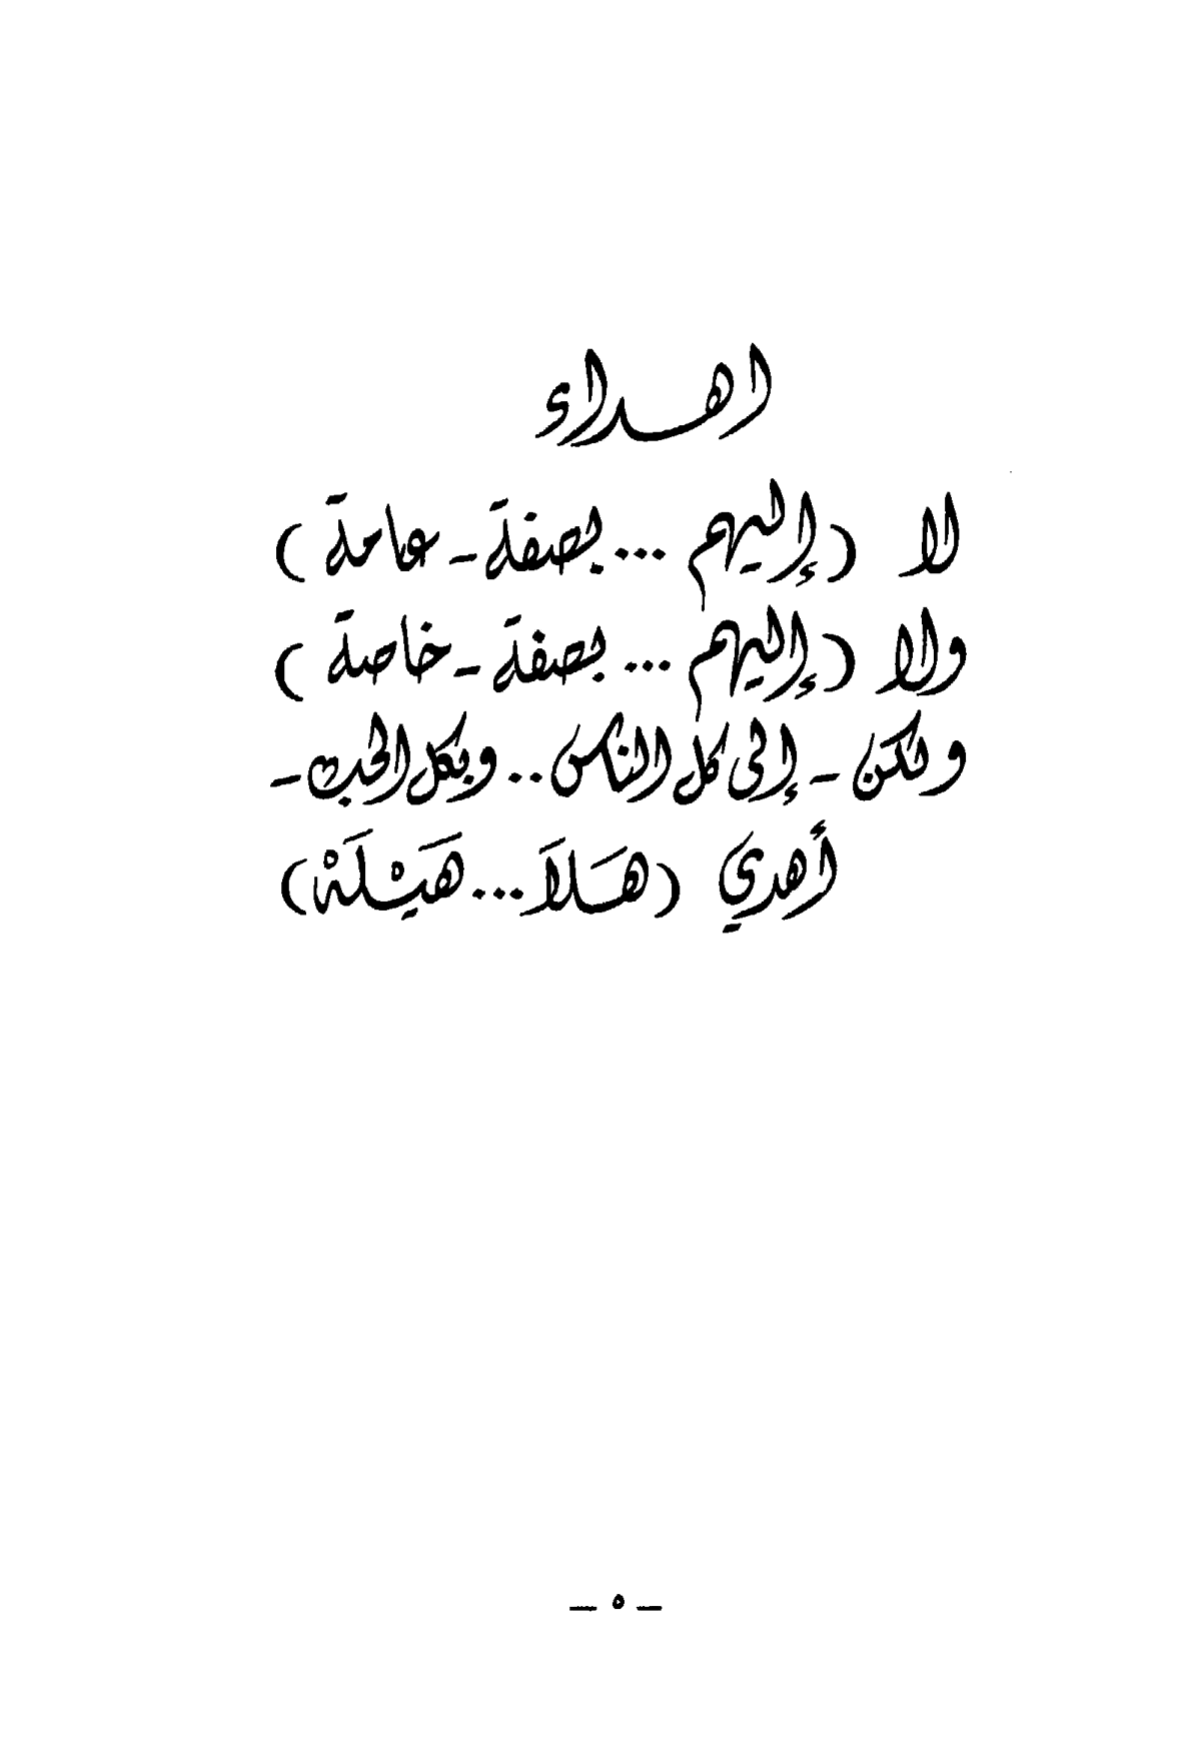 اهداء
لا (إليهم ... بصفة - عامة)
ولا (إليهم ... بصفة - خاصة)
ولكن - إلى كل الناس .. وبكل الحب -
أهدي (هَلاَ ... هَيْلَهْ)
— ٥ —